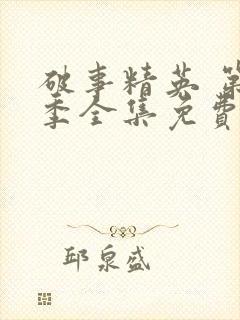 破事精英 第
季全集免費
邱泉盛